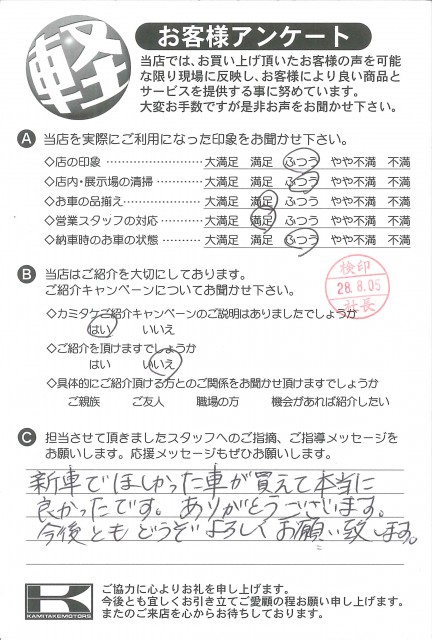 軽
お客様アンケート
当店では、お買い上げ頂いたお客様の声を可能
な限り現場に反映し、お客様により良い商品と
サービスを提供する事に努めています。
大変お手数ですが是非お声をお聞かせ下さい。
A 当店を実際にご利用になった印象をお聞かせ下さい。
◇店の印象 ………………… 大満足 満足 ふつう やや不満 不満
◇店内・展示場の清掃 ………… 大満足 満足 ふつう やや不満 不満
◇お車の品揃え ……………… 大満足 満足 ふつう やや不満 不満
◇営業スタッフの対応 ………… 大満足 満足 ふつう やや不満 不満
◇納車時のお車の状態 ………… 大満足 満足 ふつう やや不満 不満
B 当店はご紹介を大切にしてあります。
ご紹介キャンペーンについてお聞かせ下さい。
検印
28.8.05
社長
◇カミタケご紹介キャンペーンのご説明はありましたでしょうか
はい いいえ
◇ご紹介を頂けますでしょうか
はい いいえ
◇具体的にご紹介頂ける方とのご関係をお聞かせ頂けますでしょうか
ご親族 ご友人 職場の方 機会があれば紹介したい
C 担当させて頂きましたスタッフへのご指摘、ご指導メッセージを
お願いします。応援メッセージもぜひお願いします。
新車でほしかった車が買えて本当に
良かったです。ありがとうございます。
今後ともどうぞよろしくお願い致します。
K
KAMITAKEMOTORS
ご協力に心よりお礼を申し上げます。
今後とも宜しくお引き立てご愛顧の程お願い申し上げます。
またのご来店を心からお待ちしております。